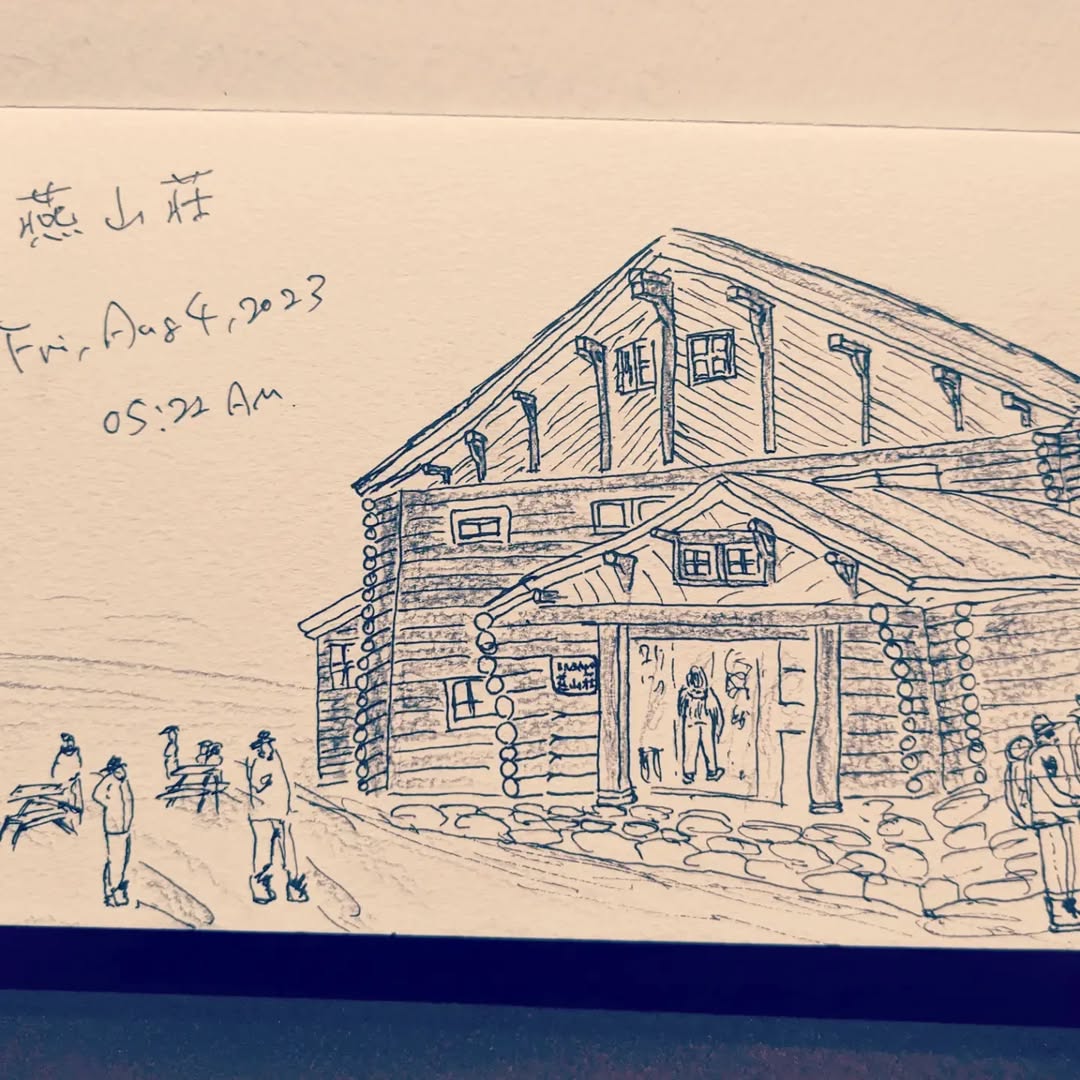 燕山荘
Fri, Aug 4, 2023
05:22 AM.
燕山荘